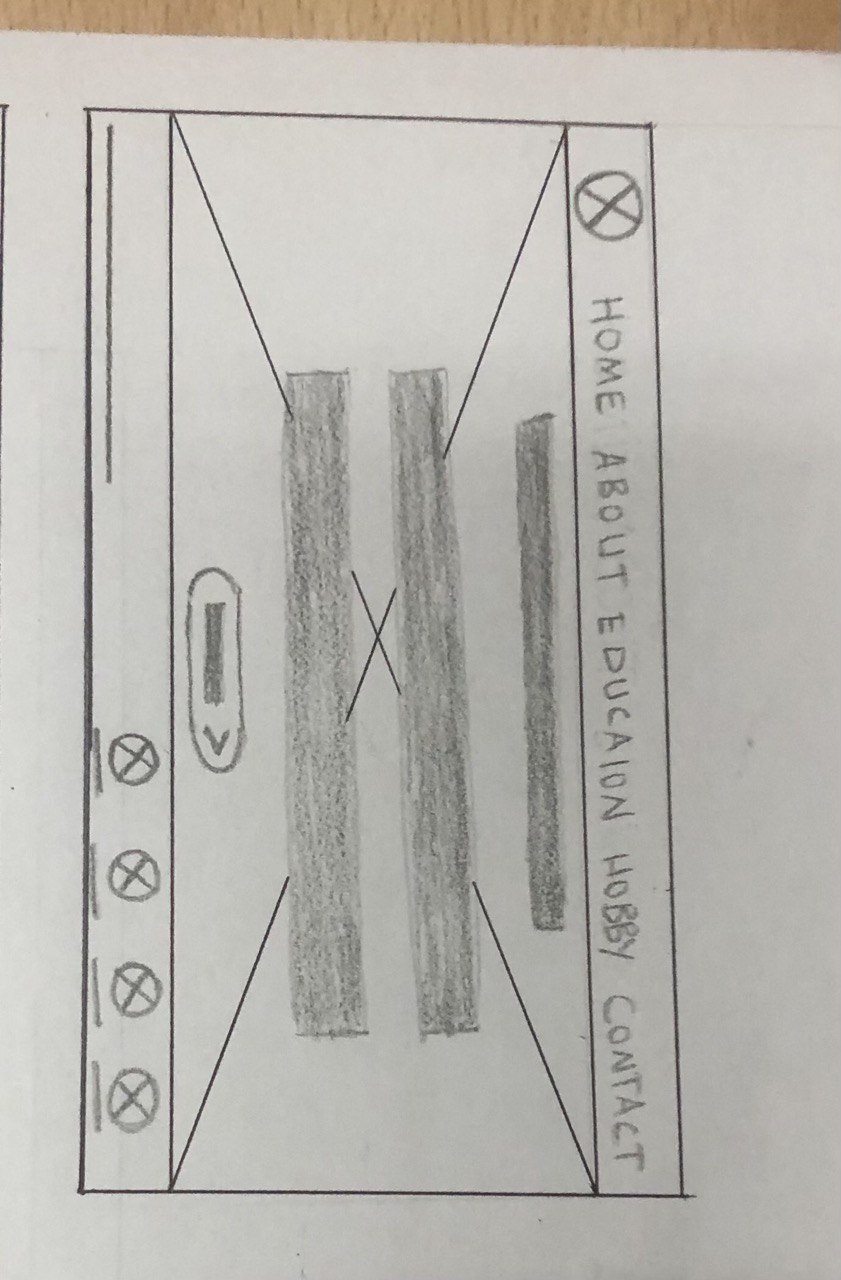 HOME ABOUT EDUCAION HOBBY CONTACT